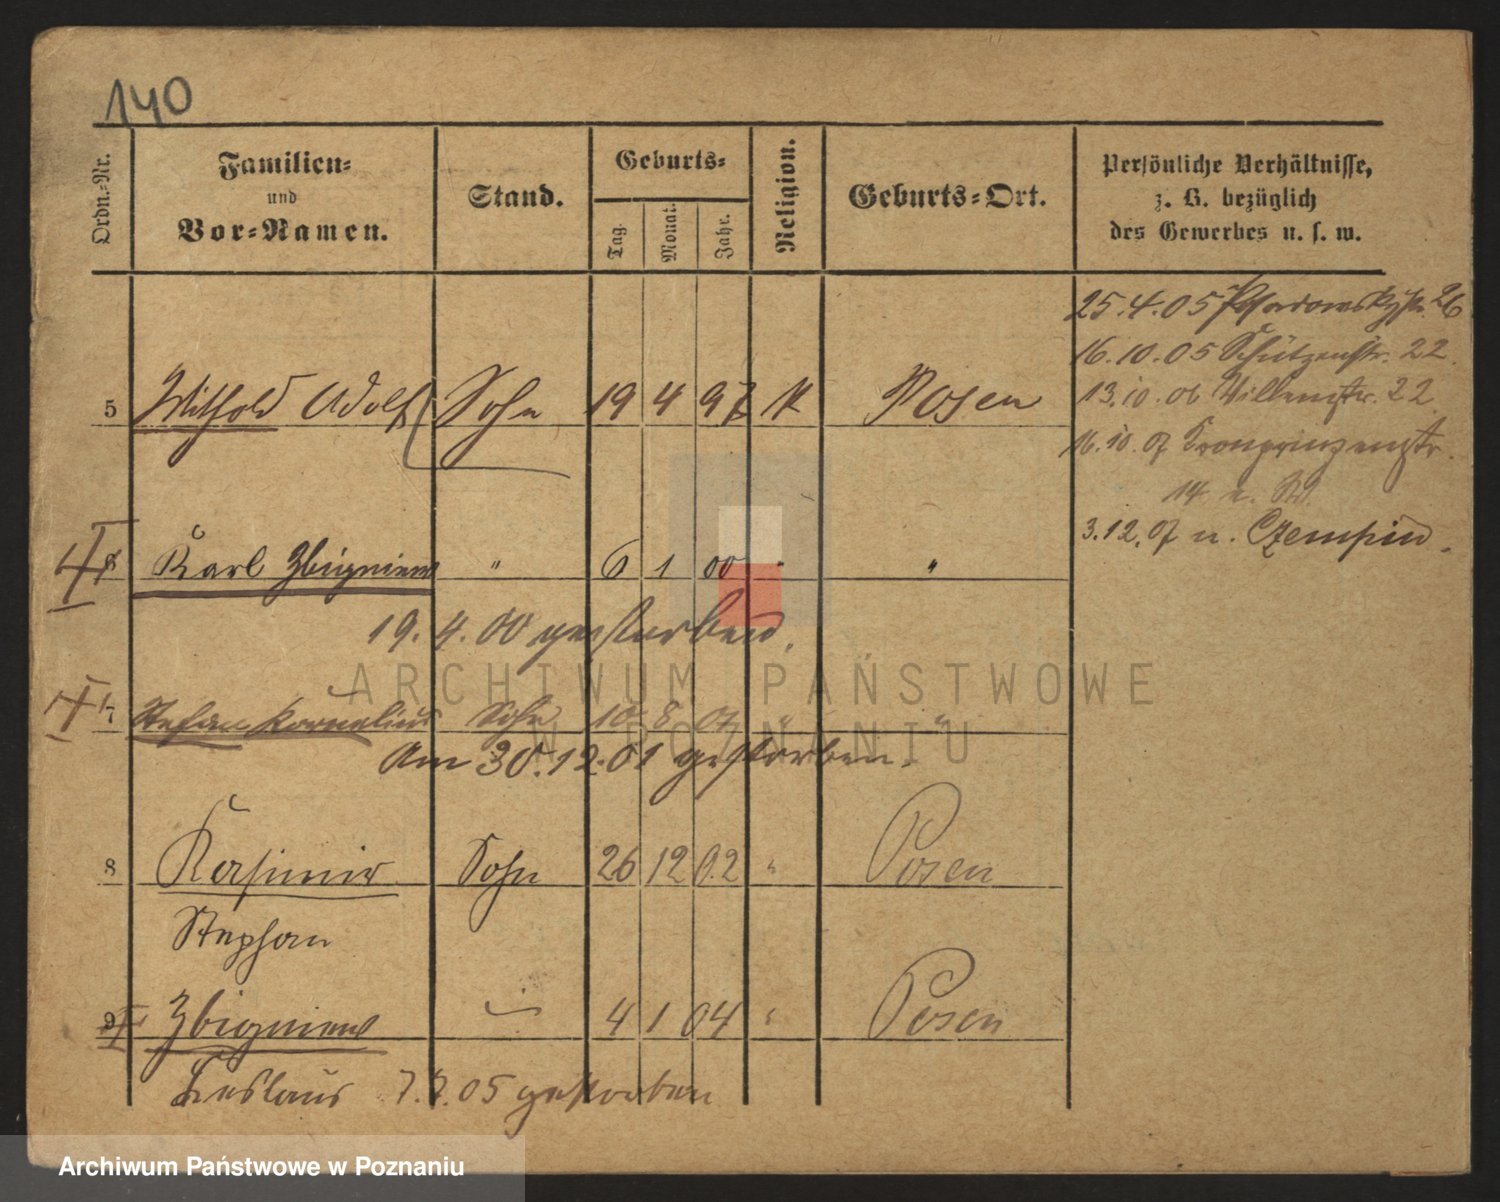 140
Ordn.-Nr.
Familien-
und
Vor-Namen.
Stand.
Geburts-
Tag.
Monat.
Jahr.
Religion.
Geburts-Ort.
Persönliche Verhältnisse,
z. B. bezüglich
des Gewerbes u. s. w.
25.4.05 26
16.10.05 Schützenstr. 22.
5 Withold Adolf Sohn 19 4 97 K Posen
13.10.06 22
16.10.07 Kronprinzenstr.
14
3.12.07 n. Czempin.
6 Karl Zbigniew " 6 1 00 " "
19.4.00 gestorben.
7 Stefan Kornelius Sohn 10 8 01 " "
Am 30.12.01 gestorben.
8 Kasimir Sohn 26 12 02 " Posen
Stephan
9 Zbigniew 4 1 04 " Posen
Leslaus 7.7.05 gestorben
ARCHIWUM PAŃSTWOWE
W POZNANIU
Archiwum Państwowe w Poznaniu